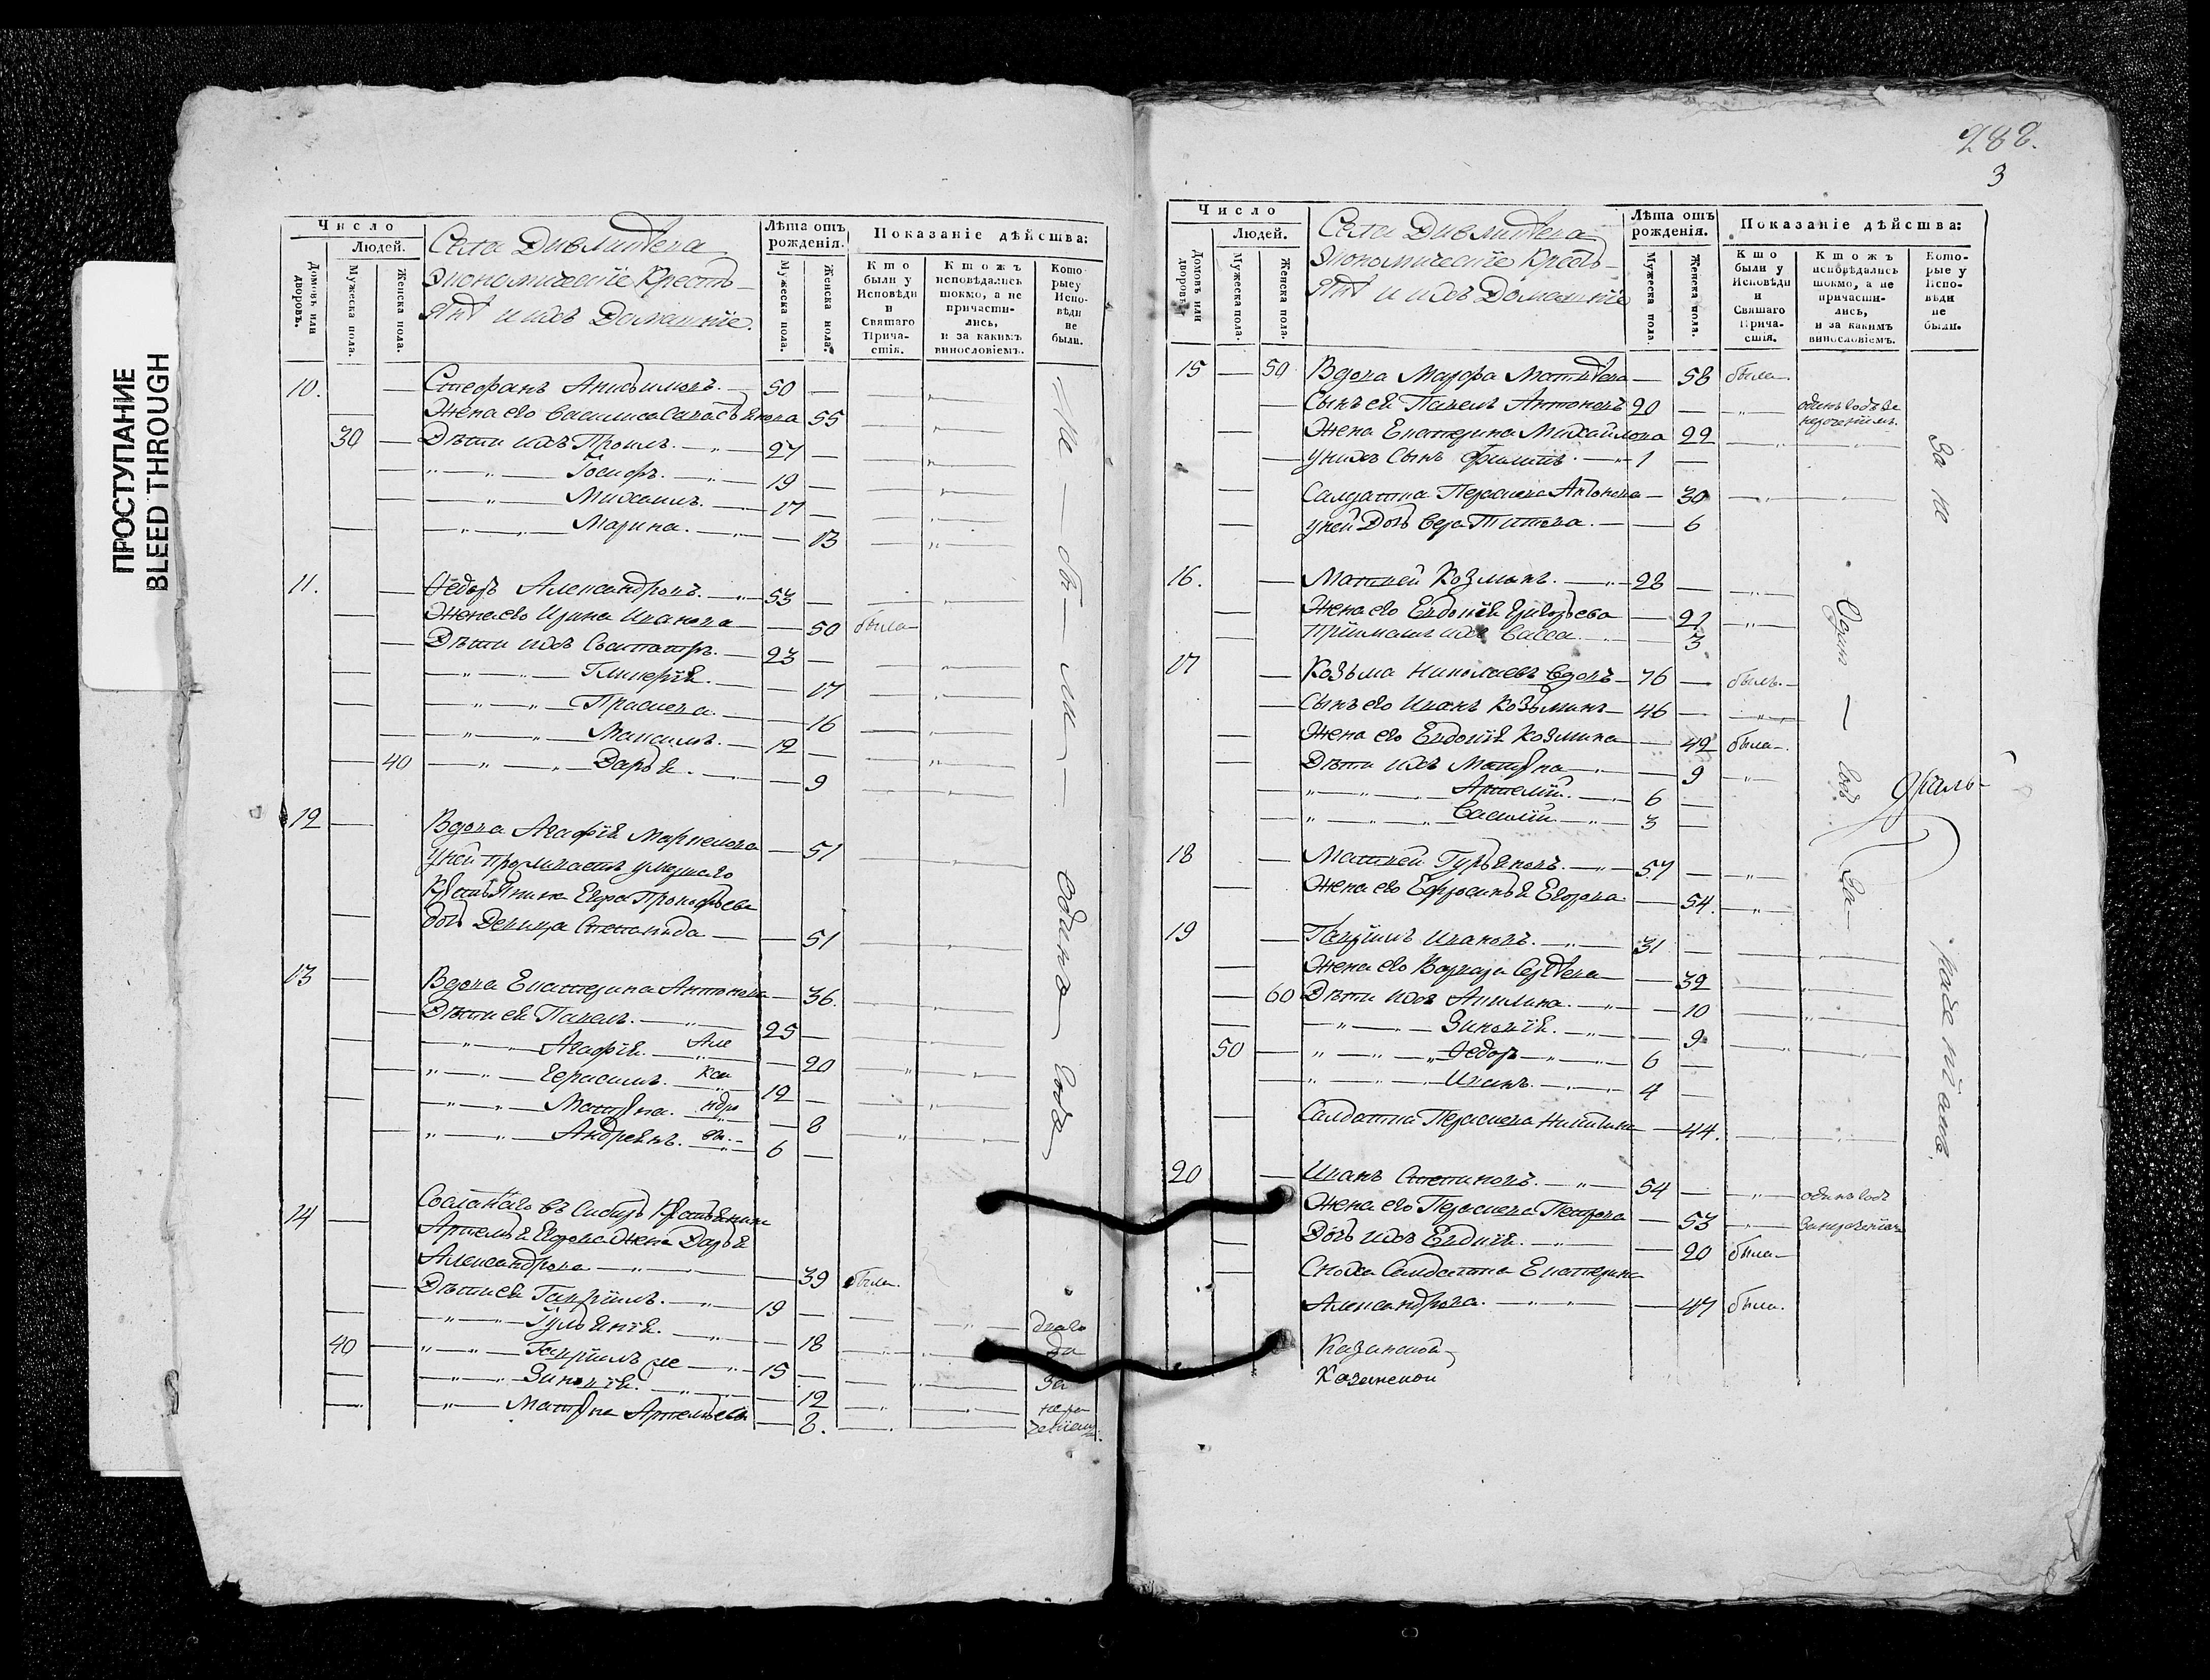 ПРОСТУПАНИЕ
BLEED THROUGH
Число
Людей.
Домовъ или дворовъ.
Мужеска пола.
Женска пола.
Села
Экономическіе Кресть-
яня и ихъ Домашніе.
Лѣта отъ рожденія.
Мужеска пола.
Женска пола.
Показаніе дѣйства:
Кто были у Исповѣди и Святаго Причастія.
Ктожъ исповѣдались токмо, а не причастились, и за какимъ винословіемъ.
Которые у Исповѣди не были.
10. Стефанъ 50
Жена его Василиса 55
30 Дѣти ихъ 27
Іосифъ. 19
Михаилъ. 17
Марина. 13
11. Ѳедоръ Александровъ. 53
Жена его Ирина Иванова 50 была
Дѣти ихъ 23
Гликерія. 17
Прасковья. 16
Максимъ. 12
40 Дарья. 9
не были одинъ годъ
12 Вдова Агафія 51
у ней
Прокофьева
дочь Девица Степанида 51
13 Вдова Екатерина Антонова 36.
Дѣти ея Павелъ. 25
Агафія. Але 20
Герасимъ. кса 12
Матрона. ндро 8
Андреянъ. вы. 6
14 Сосланнаго въ Сибирь Крестьянина
Артемья Егорова Жена Дарья
Александрова 39 была.
Дѣти ея Гаврiилъ. 19
Гульянія. 18
40 Гаврiилъ же 15
Зиновія. 12
Матрона Артемьева 8.
два го
да
за
нера
деніемъ.
288.
3
Число
Людей.
Домовъ или дворовъ.
Мужеска пола.
Женска пола.
Села
Экономическіе Кресть-
яня и ихъ Домашніе
Лѣта отъ рожденія.
Мужеска пола.
Женска пола.
Показаніе дѣйства:
Кто были у Исповѣди и Святаго Причастія.
Ктожъ исповѣдались токмо, а не причастились, и за какимъ винословіемъ.
Которые у Исповѣди не были.
15 50 Вдова Марфа Матвѣева 58 была
Сынъ ея Павелъ Антоновъ 20 одинъ годъ за
нераченіемъ
Жена Екатерина Михайлова 22
у нихъ Сынъ Филипъ 1
Салдатка Перасковья Антонова 30
у ней Дочь Вера Титова. 6
16. Матвей Козминъ. 28
Жена его Евдокія Григорьева 21
Пріимышъ ихъ Васса 3
17 Козьма Николаевъ вдовъ 76 былъ.
Сынъ его Иванъ Козьминъ 46
Жена его Евдокія Козмина 42 была.
Дѣти ихъ Матрона 9
Артемій. 6
Василій 3
18 Матвей Гурьяновъ. 57
Жена его Ефросинья Егорова 54.
19 Гаврiилъ Ивановъ. 31
Жена его Варвара 32
60 Дѣти ихъ Акилина. 10
Зиновія. 9
50 Ѳедоръ 6
Иванъ. 4
Салдатка Перасковья Никитина 44.
20 Иванъ Степановъ. 54 одинъ годъ
Жена его Перасковья Петрова 53 за нераченіемъ
Дочь ихъ Евдокія. 20 была
Сноха Салдатка Екатерина
Александрова. 47 была.
Казанской
Казанской
За не
Один годъ за